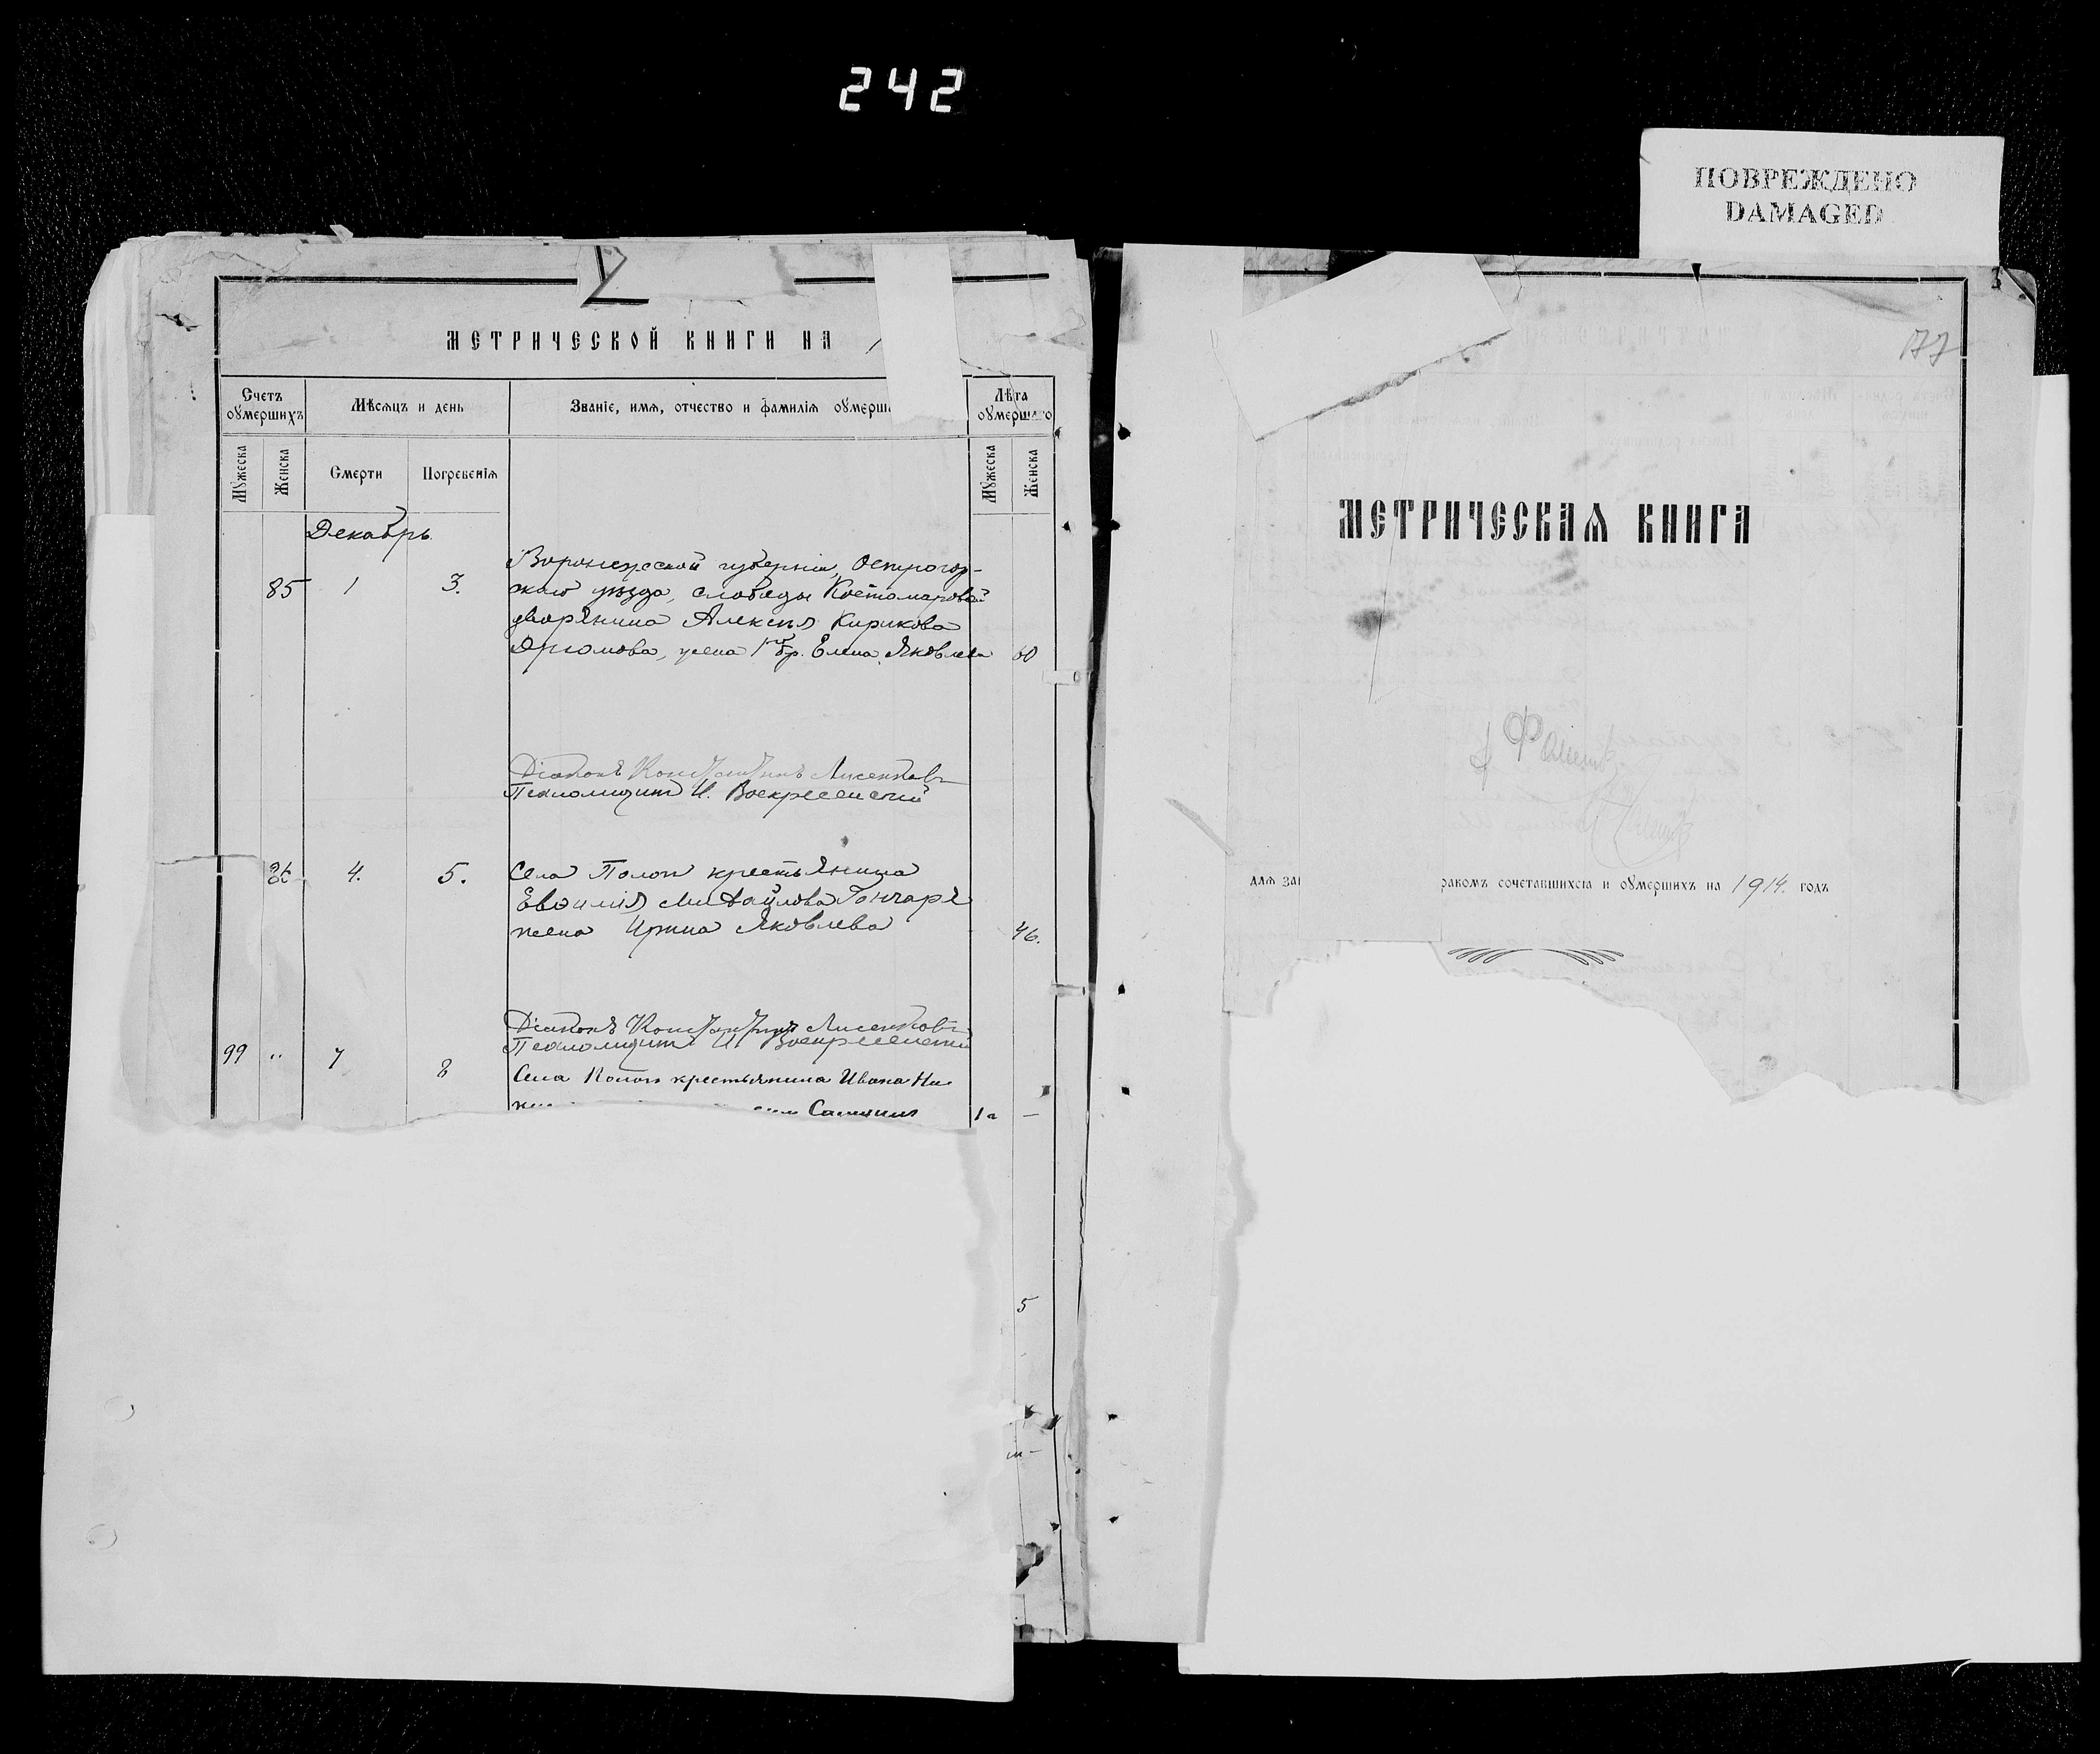 242
ПОВРЕЖДЕНО
DAMAGED
МЕТРИЧЕСКОЙ КНИГИ НА 1
Счетъ оумершихъ
Мѣсяцъ и день
Званіе, имя, отчество и фамилія оумерш
Лѣта оумершаго
Мужеска
Женска
Смерти
Погребенія
Мужеска
Женска
Декабрь
85 1 3. Воронежской губерніи, Острогор-
жскаго уѣзда, слободы Костомаровой
дворянина Алексѣя Кирикова
жена 1го бр. Елена Яковлева 60
Діаконъ Константинъ Лисенковъ
Псаломщикъ И. Воскресенскій
4. 5. Села Полоп крестьянина
Евѳимія Михайлова Гончаря
жена Ирина Яковлева 46.
Діаконъ Константинъ Лисенковъ
Псаломщикъ И. Воскресенскій
99 " 7 8 Села крестьянина Ивана Ни-
5
177
МЕТРИЧЕСКАЯ КНИГА
для за ракомъ сочетавшихся и оумершихъ на 1914. годъ